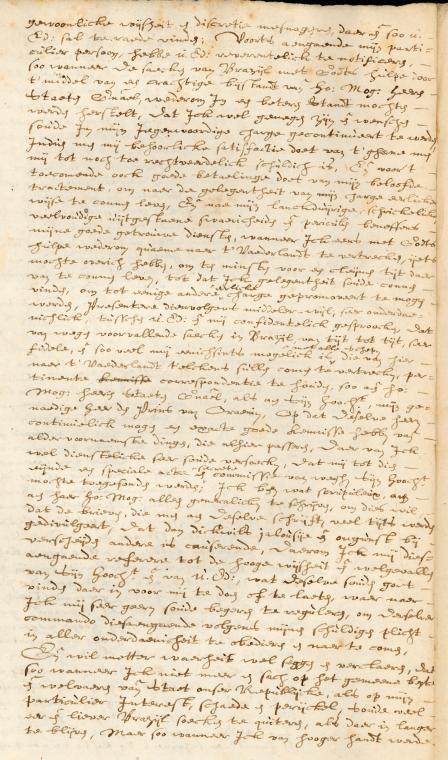 gewoonlicke wijsheit en discretie mesnageren, daer in soo u.
Ed: sal te raede vinden. Voorts aengaende mijn parti-
culier persoon, hebbe u Ed: vereerentelick te notificeren,
soo wanneer de saecken van Brazijl met Godts hulpe door
't middel van een crachtige bijstant van Ho: Mog: heeren
Staeten Generael, wederom in een beteren standt mochten
werden herstelt, dat ick wel genegen ben en wenschen
soude in mijn jegenwoordige charge gecontinueert te werden
Indien men mij behoorlicke satisfactie doet van 't ghene men
mij tot noch toe rechtveerdelick schuldich is, en voort
toecomende oock goede betaelinge doet van mijn beloofde
traitement, om naer de gelegentheit van mijn charge eerlicker
wijse te connen leven, en nae mijn lanckduijrige, schrickelicke
veelvoudige uijtgestaene swaericheden en periculen beneffens
mijne goede getrouwe diensten, wanneer ick eens met Godts
hulpe wederom quaeme naer 't Vaederlandt te vertrecken, ijets
mochte overich hebben, om ten minsten voor een cleijnen tijt daer
van te connen leven, tot dat ick gelegentheit soude connen
vinden, om tot eenige andere eerlicke charge gepromoveert te mogen
werden, Presentere dienvolgens middeler-wijl, seer onderdae-
nichlick, tusschen u Ed: en mij confidentelick gesproocken, dat
van wegen voorvallende saecken in Brazijl van tijt tot tijt, seer
fidele, en soo veel mij eenichsints mogelick is, die van hier
naer 't Vaederlandt telckens sullen comen te vertrecken, per-
tinente correspondentie te houden, soo aen ho:
Mog: heeren Staeten Generael, als aen Sijn Hoocht. mijn ge-
naedige heer den Prins van Orangien, Op dat deselve heeren
continuelick mogen een exacte goede kennisse hebben van
alder voornaemste dingen, die alhier passeren, daer van ick
wel dienstelicken seer soude versoecken, dat mij tot dien
eijnde een speciale acte secrete commissie van wegen Sijn Hoocht
mochte toegesonden werden, Ick ben wat scrupuleus, om
aen haer Ho: Mog: alles generalicken te schrijven, om dies wil
dat de brieven, die men aen deselve schrijft, veel tijts werden
gedivulgeert, dat dan dickwils jalousije en ongunst bij
verscheijden andere is causerende, Daerom ick mij dien-
aengaende referere tot de hooge wijsheit en welgevallen
van Sijn Hoocht en van u. Ed: wat deselve soude goet
vinden daer in voor mij te doen ofte te laeten, waer naer
Ick mij seer geern soude begeren te reguleren, om derselver
commando diesaengaende volgens mijne schuldige plicht
in aller onderdaenicheit te obedieren en naer te comen.
Ick wil metter waerheit wel seggen en verclaeren, dat
soo wanneer ick niet meer en sach op het gemeene beste
en welvaeren van Staet onser Republijcke, als op mijn
particulier Interest, schaede en perijckel, soude veel
eer en liever Brazijl soecken te quiteren, als daer in langer
te blijven, Maer soo wanneer ick van hooger handt werde